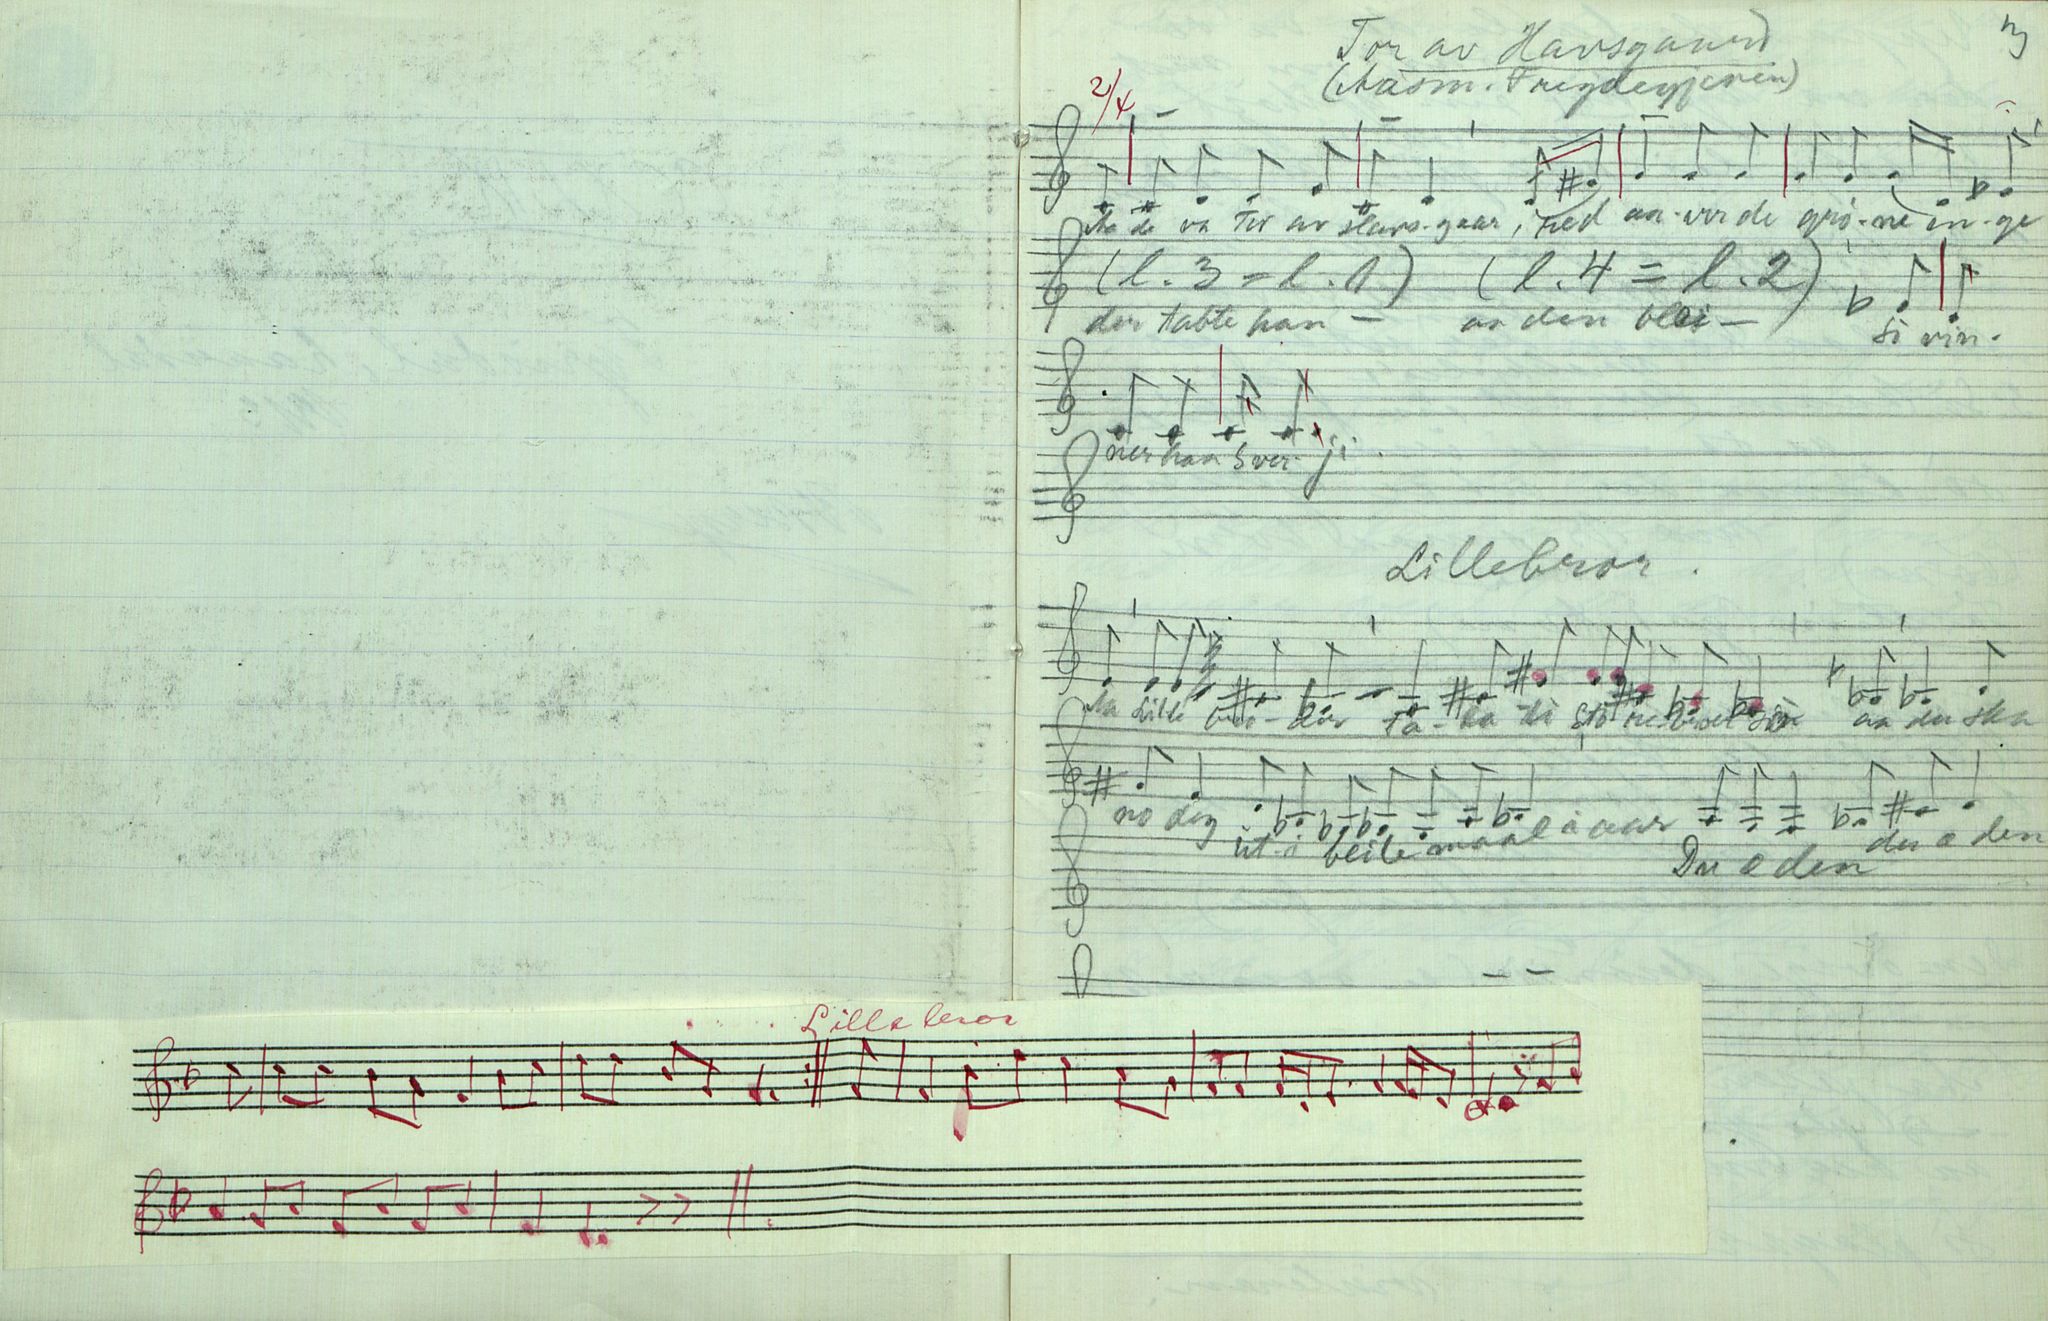 3
Tor av Havsgaard
(Aasm. Frøydegjeren)
2/4
Aa de va Tor av Havs-gaar, red aa-ver de grö-ne en-ge
(l. 3 = l. 1) (l. 4 = l. 2)
der tabte han — aa den blei — Si vin-
ner han Sver-ji.
Lillebror.
Aa Lille bro-der ta-ka di stö-re broer sin aa du ska
no deg ut i beile maal i aar Du e den du e den
Lillebror